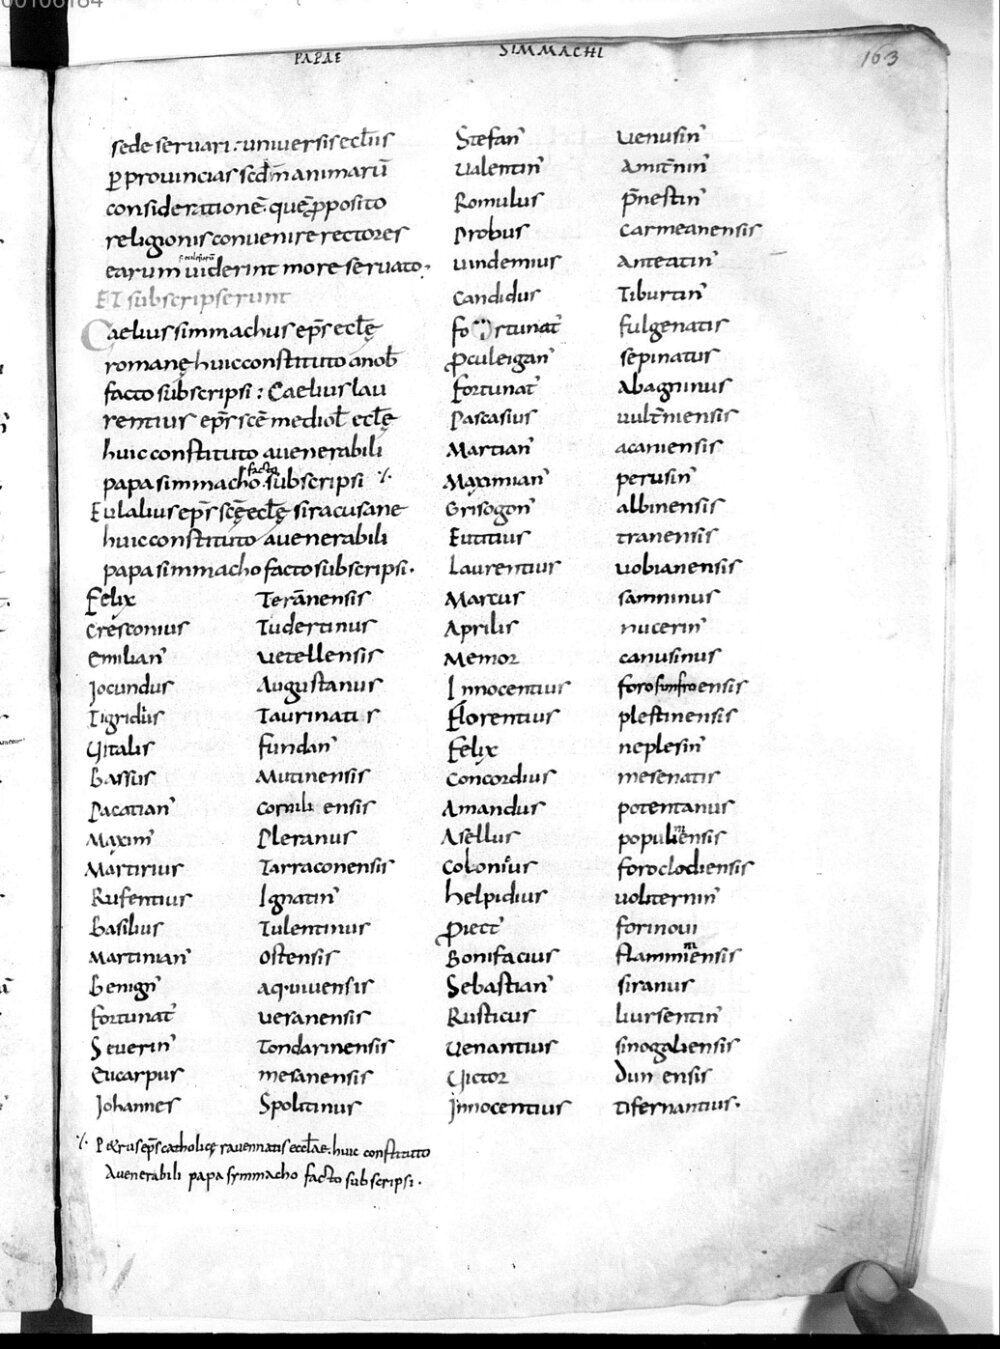 PAPAE SIMMACHI 163
sede seruari : uniuersis eccl̄iis
ꝑ prouincias scd̄m animarū
considerationē. quę ꝓposito
religionis conuenire rectores
earum uiderint more seruato.
ET subscripserunt
Caelius simmachus ep̄s eclę̄
romanę huic constituto a nob̄
facto subscripsi : Caelius lau
rentius ep̄s scē mediol̄ eclę̄
huic constituto auenerabili
papa simmacho facto subscripsi ⁒
Eulalius ep̄s scę̄ eclę̄ siracusane
huic constituto auenerabili
papa simmacho facto subscripsi.
Felix Terānensis
Cresconius Tudertinus
Emilian̄ uetellensis
Jocundus Augustanus
Tigridius Taurinatis
Uitalis fundan̄
Bassus Mutinensis
Pacatian̄ corniliensis
Maxim̄ Pleranus
Martirius Tarraconensis
Rufentius Ignatin̄
Basilius Tulentinus
Martinian̄ Ostensis
Benign̄ aq.uiuensis
fortunat̄ ueranensis
Seuerin̄ Tondarinensis
Eucarpus mesanensis
Johannes Spolitinus
⁒ Petrus ep̄s catholicę rauennatis eccl̄ae. huic constituto
Auenerabili papa symmacho facto subscripsi.
Stefan̄ uenusin̄
Ualentin̄ Amit̄nin̄
Romulus p̄nestin̄
Probus Carmeanensis
uindemius Anteatin̄
Candidus Tiburtin̄
fortunat̄ fulgenatis
ꝓculeigan̄ sepinatus
fortunat̄ Abagninus
Pascasius uult̄niensis
Martian̄ acaniensis
Maximian̄ perusin̄
Grisogon̄ albinensis
Eutitius tranensis
Laurentius uobianensis
Marcus samninus
Aprilis nucerin̄
Memor canusinus
Innocentius forosimfroensis
Florentius plestinensis
Felix neplesin̄
Concordius mesenatis
Amandus potentanus
Asellus populiensis
Colonius foroclodiensis
helpidius uoliternin̄
ꝓiect̄ forinoui
Bonifacius flamminensis
Sebastian̄ siranus
Rusticus liursentin̄
Uenantius sinogaliensis
Uictor Dunensis
Innocentius tifernantius.